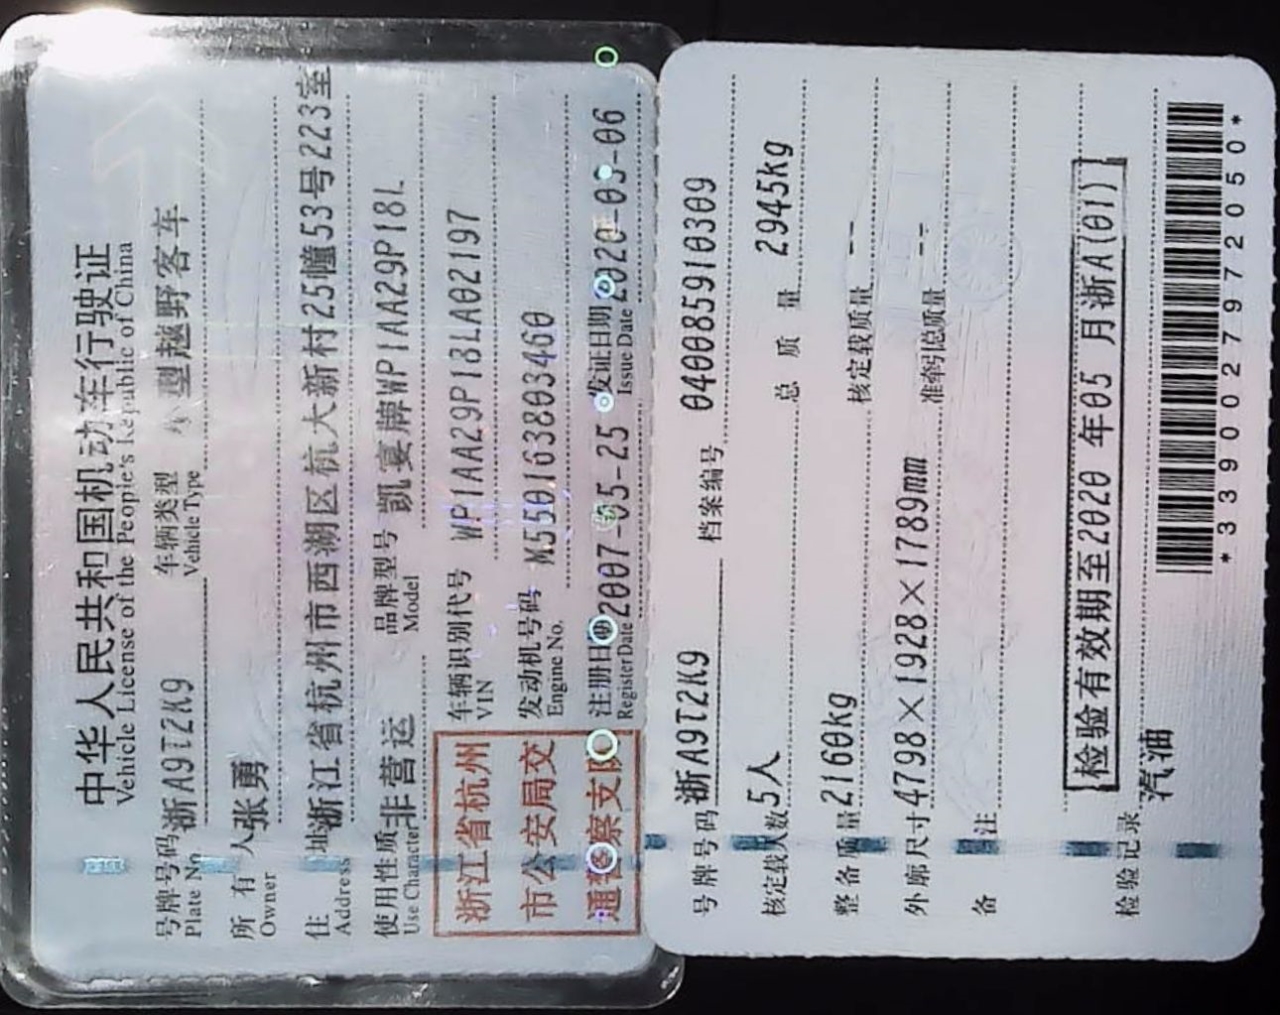 中华人民共和国机动车行驶证
Vehicle License of the People's Republic of China
号牌号码 浙A9T2K9 车辆类型 小型越野客车
Plate No. Vehicle Type
所有人 张勇
Owner
住址 浙江省杭州市西湖区杭大新村25幢53号223室
Address
使用性质 非营运 品牌型号 凯宴牌WP1AA29P18L
Use Character Model
浙江省杭州
市公安局交
通警察支队
车辆识别代号 WP1AA29P18LA02197
VIN
发动机号码 M550163803460
Engine No.
注册日期 2007-05-25 发证日期 2020-03-06
Register Date Issue Date
号牌号码 浙A9T2K9 档案编号 040085910309
核定载人数 5人 总质量 2945kg
整备质量 2160kg 核定载质量 --
外廓尺寸 4798×1928×1789mm 准牵引总质量 --
备注
[检验有效期至2020 年05 月浙A(01)]
检验记录
汽油
*3390027972050*